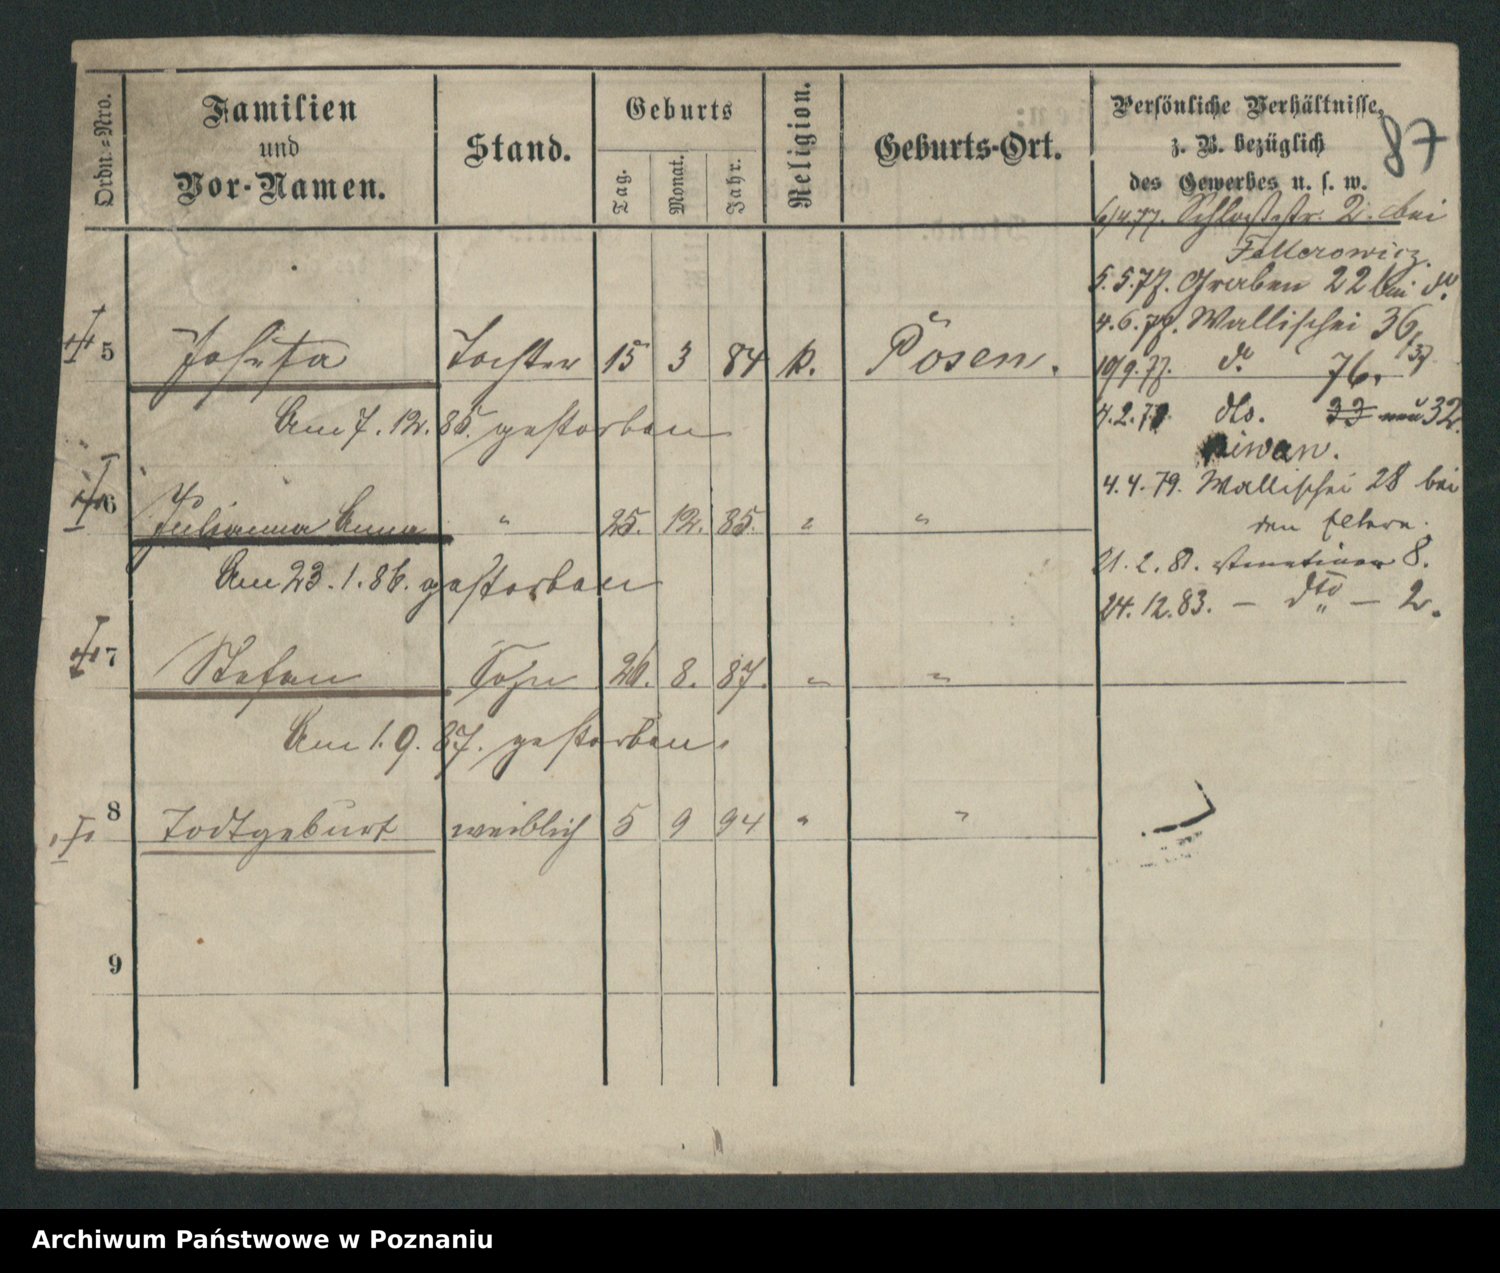 Ordn.-Nro.
Familien
und
Vor-Namen.
Stand.
Geburts
Tag.
Monat.
Jahr.
Religion.
Geburts-Ort.
Persönliche Verhältnisse,
z. B. bezüglich
des Gewerbes u. s. w.
87
6/4.77. Schloßstr. 2. bei
5.5.77. Graben 22 bei do.
4.6.77. Wallischei 36,
19/9.77. do 76.
4.2.79. dto. 33 neu 32.
4.4.79. Wallischei 28 bei
den Eltern.
21.2.81. Venetianer 8.
24.12.83. — dto — 2.
5 Josefa Tochter 15 3 84 k. Posen.
Am 7.12.85. gestorben
6 Julianna Anna " 25. 12. 85. " "
Am 23.1.86. gestorben
7 Stefan Sohn 26. 8. 87. " "
Am 1.9.87. gestorben.
8 Todtgeburt weiblich 5 9 94 " "
9
Archiwum Państwowe w Poznaniu